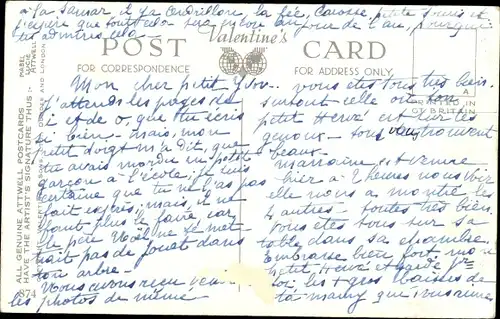 à la Samar il ya Cendrillon la fée, Carosse petite Souris et
j'espère que tout cela sera mon de l'an, pourquoi
tu admires cela
POST Valentine's CARD
FOR CORRESPONDENCE FOR ADDRESS ONLY.
PRINTED IN
GT BRITAIN
ALL GENUINE ATTWELL POSTCARDS
HAVE THE ARTIST'S SIGNATURE THUS :-
MABEL
LUCIE
ATTWELL
VALENTINE & SONS LTD DUNDEE AND LONDON
874
Mon cher petit Yvon.
J'attends les pages de
i et de o, que tu écris
si bien - mais, mon
petit doigt m'a dit, que
tu avais mordu un petit
garçon à l'école; je suis
certaine que tu ne l'as pas
fait exprès; mais, il ne
faut plus le faire, car
le père Noël ne te met-
trait pas de jouet dans
ton arbre.
Nous avons reçu
les photos de même
vous êtes tous très bien.
surtout celle où ton
petit Hervé est sur les
genoux - tous vous trouvent
beaux.
marraine
hier à 2 heures nous
elle nous a montré les
4 autres - toutes très bien
Vous êtes tous sur sa
table dans sa chambre.
Embrasse bien fort, mon
petit Hervé et garde pr
toi, les + gros baisers de
ta mamy que vous aime